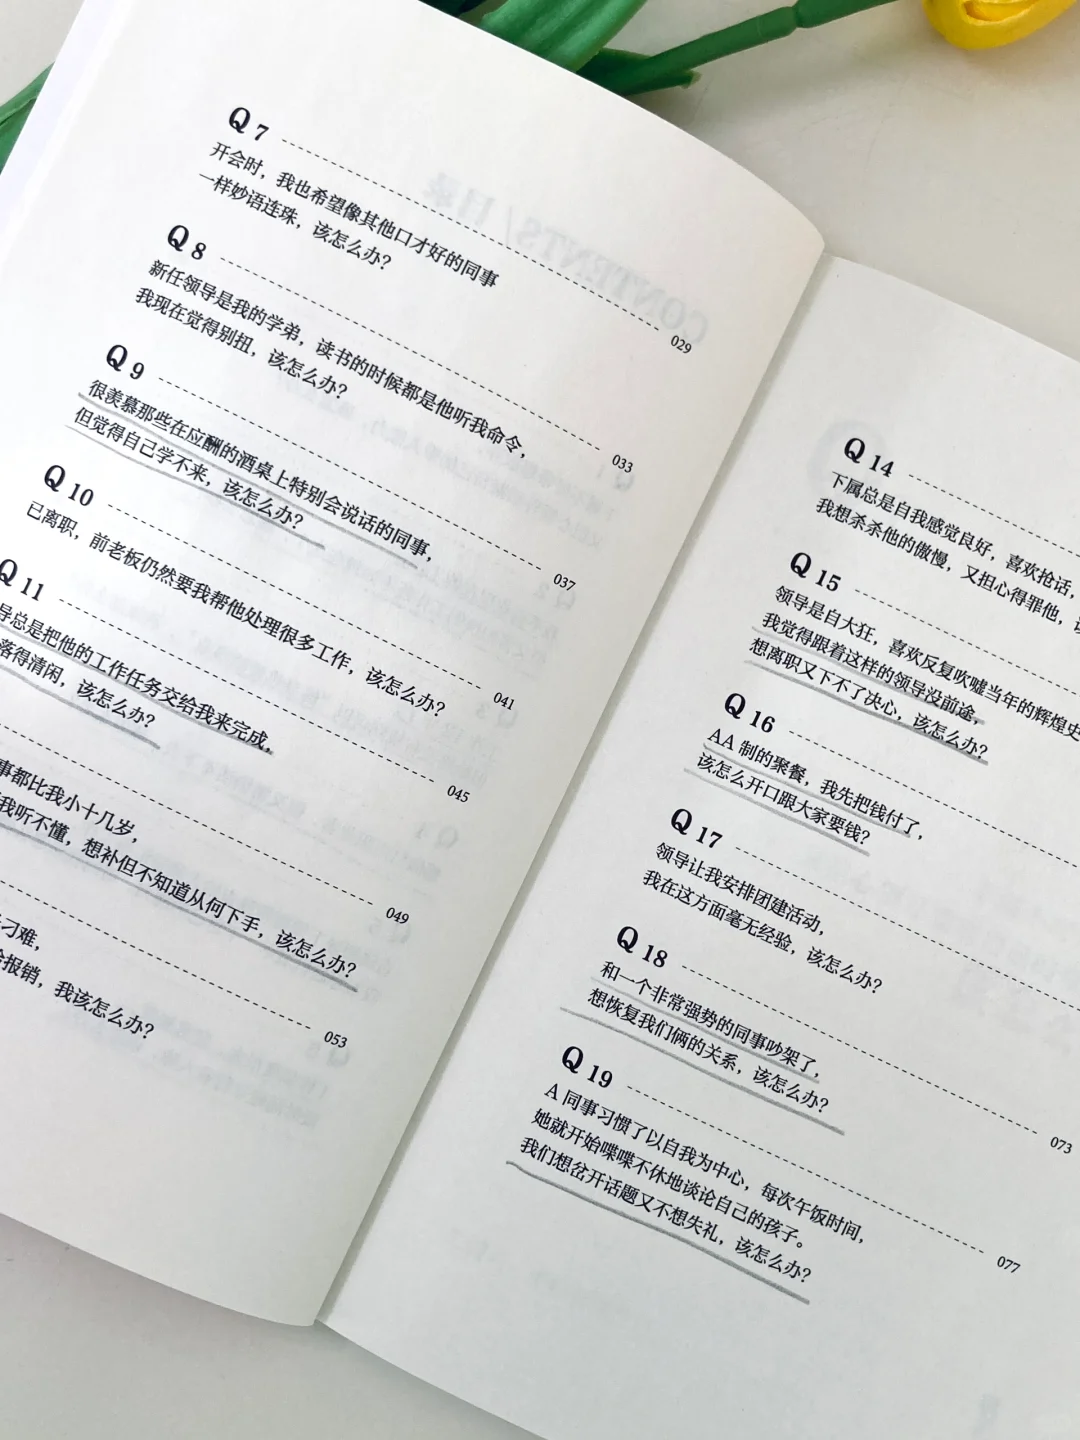 Q 7
开会时，我也希望像其他口才好的同事
一样妙语连珠，该怎么办？
029
Q 8
新任领导是我的学弟，读书的时候都是他听我命令，
我现在觉得别扭，该怎么办？
033
Q 9
很羡慕那些在应酬的酒桌上特别会说话的同事，
但觉得自己学不来，该怎么办？
037
Q 10
已离职，前老板仍然要我帮他处理很多工作，该怎么办？
041
Q 11
导总是把他的工作任务交给我来完成，
落得清闲，该怎么办？
045
事都比我小十几岁，
我听不懂，想补但不知道从何下手，该怎么办？
049
刁难，
给报销，我该怎么办？
053
Q 14
下属总是自我感觉良好，喜欢抢话，
我想杀杀他的傲慢，又担心得罪他，
Q 15
领导是自大狂，喜欢反复吹嘘当年的辉煌史
我觉得跟着这样的领导没前途，
想离职又下不了决心，该怎么办？
Q 16
AA 制的聚餐，我先把钱付了，
该怎么开口跟大家要钱？
Q 17
领导让我安排团建活动，
我在这方面毫无经验，该怎么办？
Q 18
和一个非常强势的同事吵架了，
想恢复我们俩的关系，该怎么办？
073
Q 19
A 同事习惯了以自我为中心，每次午饭时间，
她就开始喋喋不休地谈论自己的孩子。
我们想岔开话题又不想失礼，该怎么办？
077